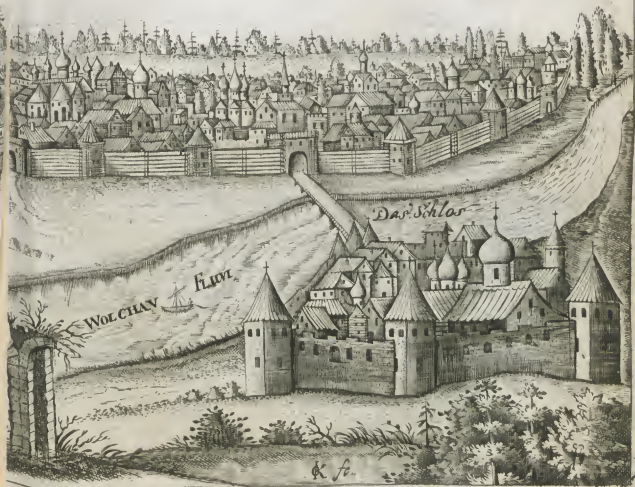 Das Schlos
WOLCHAU FLUVI.
fe.